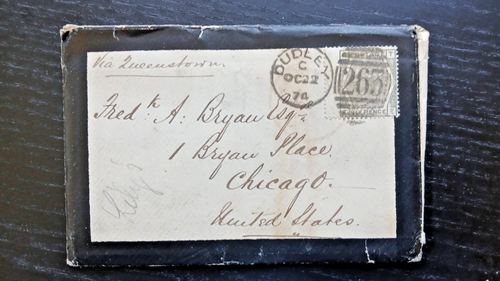 Via Queenstown.
DUDLEY
C
OC 22
74
265
Fredk. A. Bryan Esqr
1 Bryan Place.
Chicago.
United States.